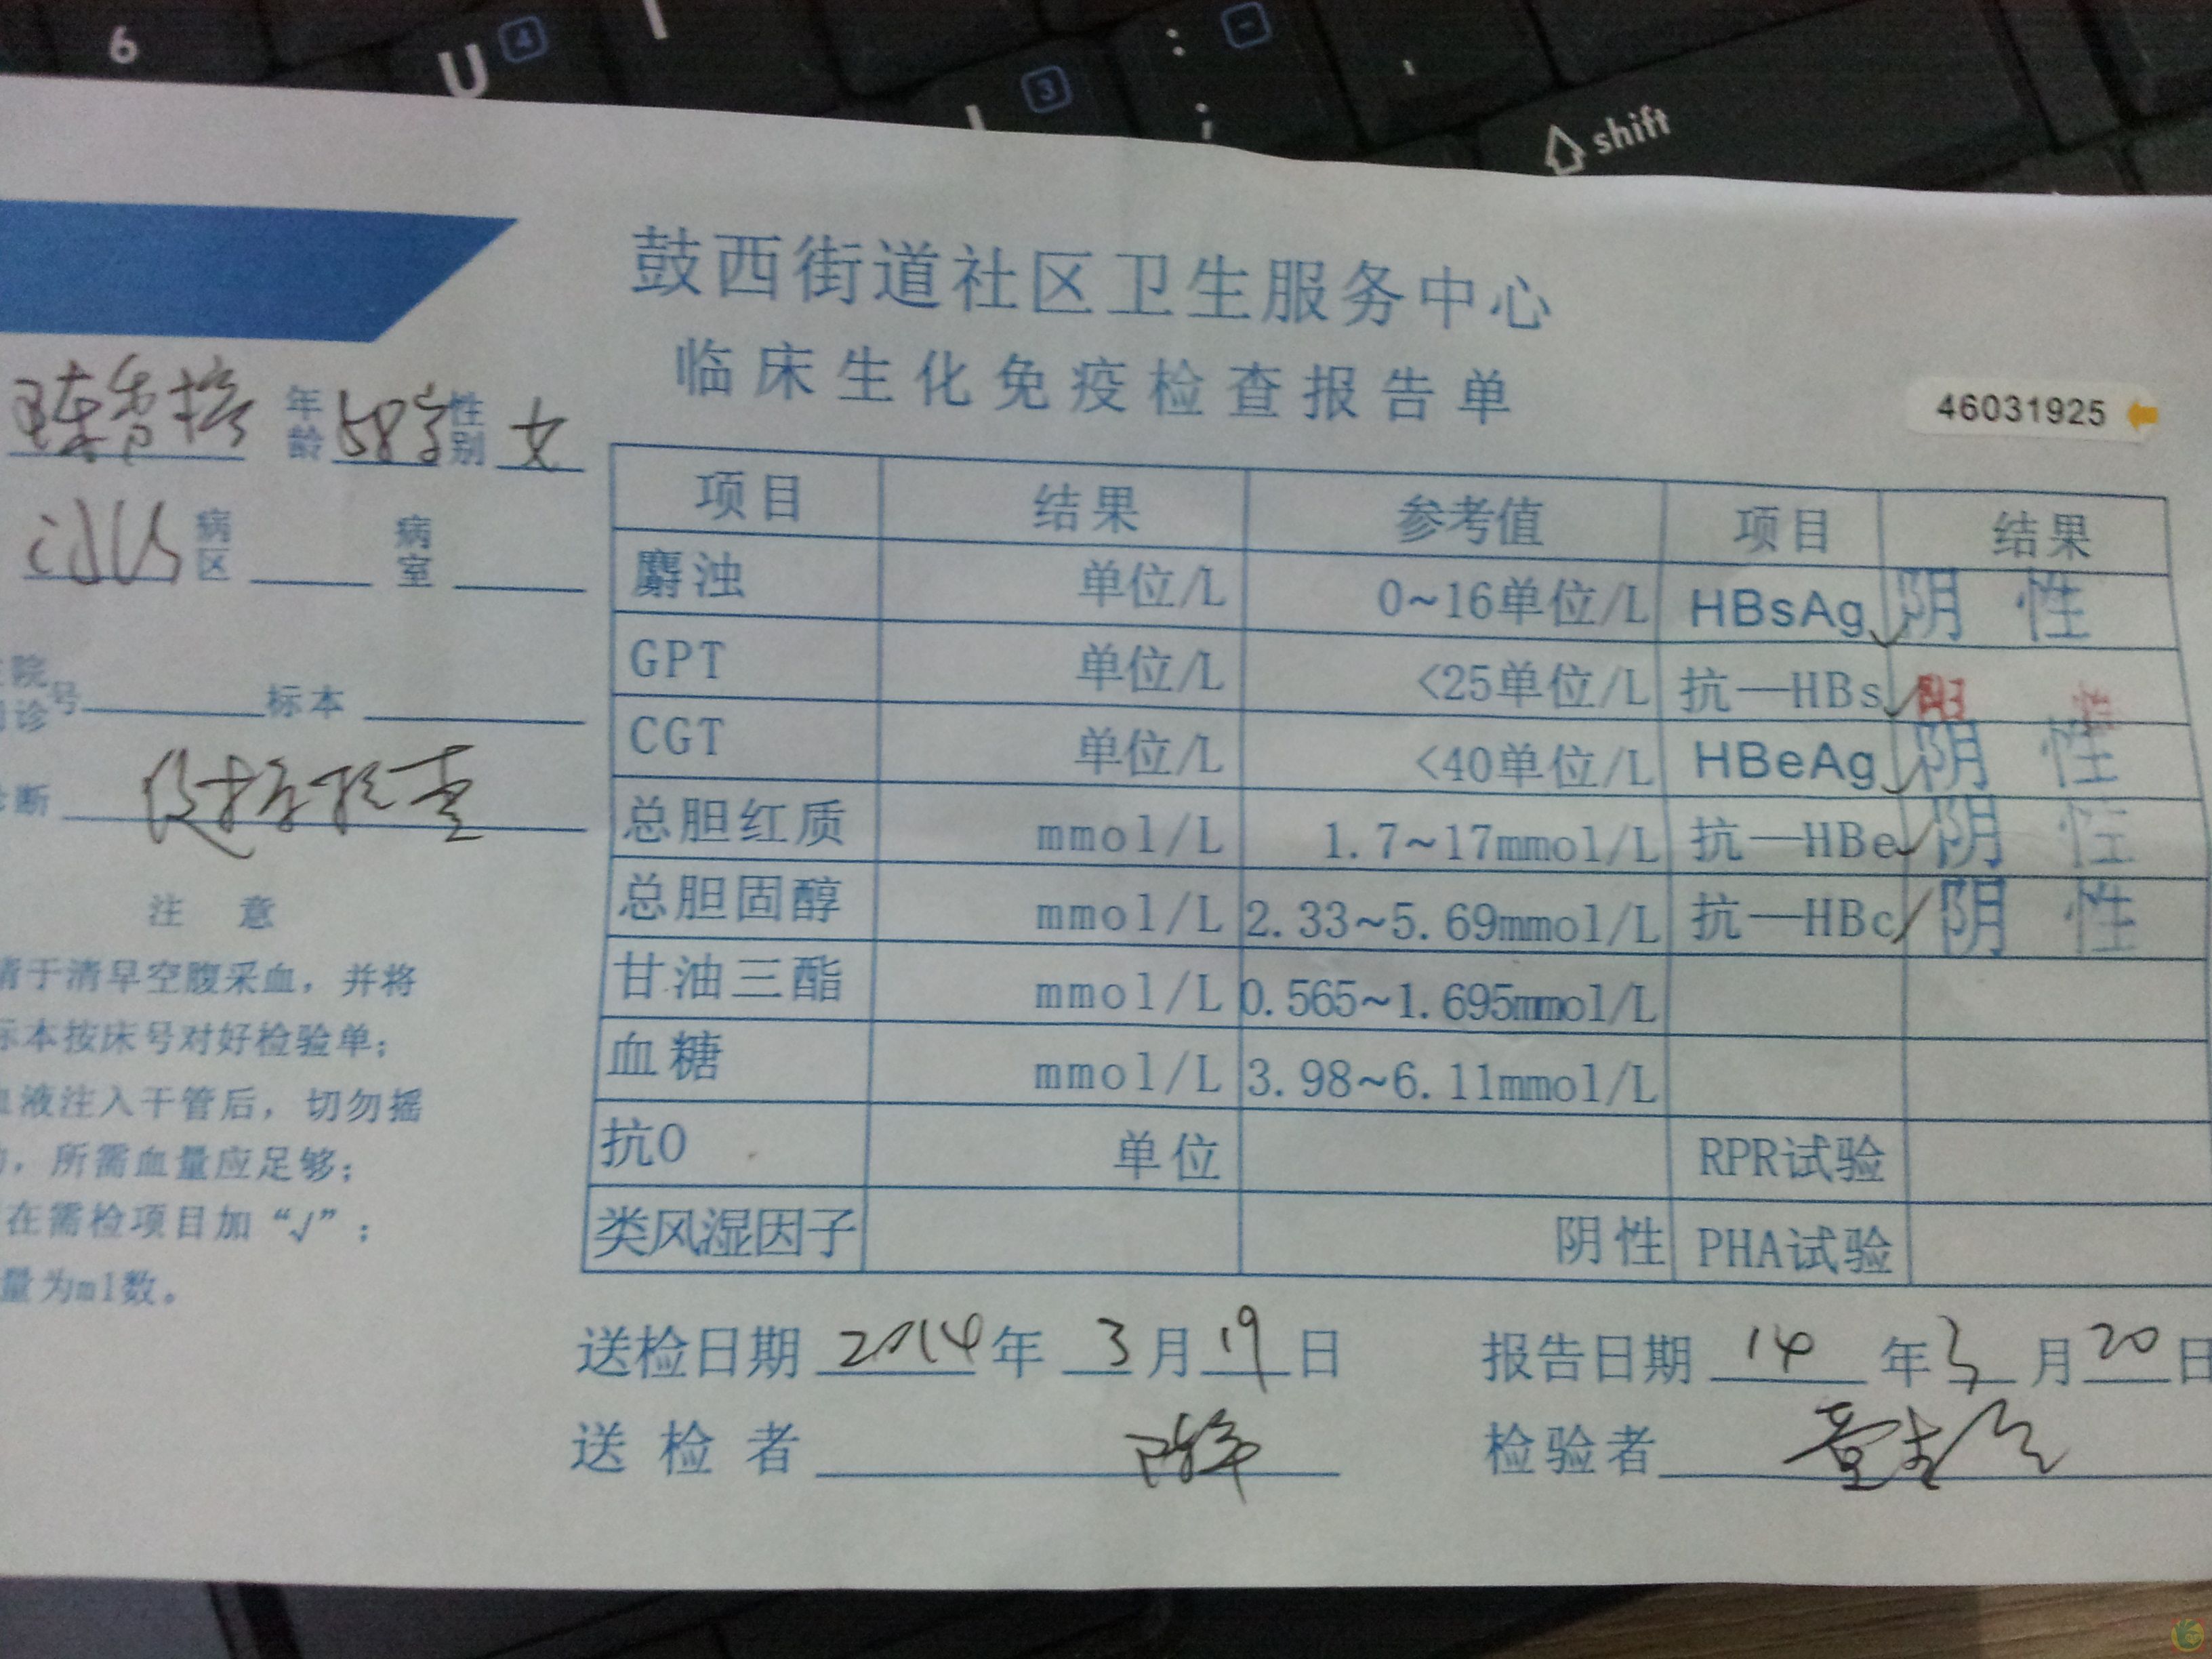 6 U 4 I J 3 : ; - , shift
鼓西街道社区卫生服务中心
临床生化免疫检查报告单
46031925
年龄 58岁 性别 女
病区 病室
院 诊 号 标本
断 健康检查
注 意
清于清早空腹采血，并将
标本按床号对好检验单；
血液注入干管后，切勿摇
，所需血量应足够；
在需检项目加“√”；
量为ml数。
项目 结果 参考值 项目 结果
麝浊 单位/L 0~16单位/L HBsAg √ 阴性
GPT 单位/L <25单位/L 抗—HBs √ 阳性
CGT 单位/L <40单位/L HBeAg √ 阴性
总胆红质 mmol/L 1.7~17mmol/L 抗—HBe √ 阴性
总胆固醇 mmol/L 2.33~5.69mmol/L 抗—HBc √ 阴性
甘油三酯 mmol/L 0.565~1.695mmol/L
血糖 mmol/L 3.98~6.11mmol/L
抗O 单位 RPR试验
类风湿因子 阴性 PHA试验
送检日期 2014年 3月 19日 报告日期 14年 3月 20日
送检者 检验者